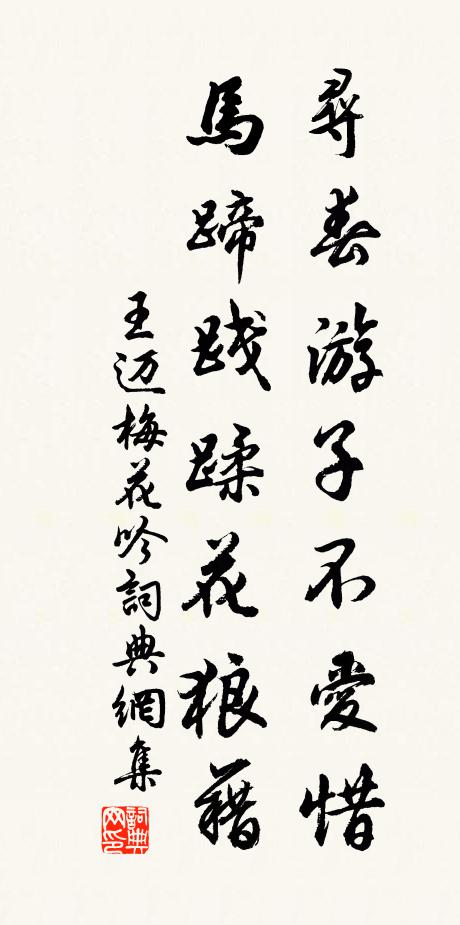 尋春游子不愛惜
馬蹄踐蹂花狼籍
王迈梅花吟詞典網集
詞典网印